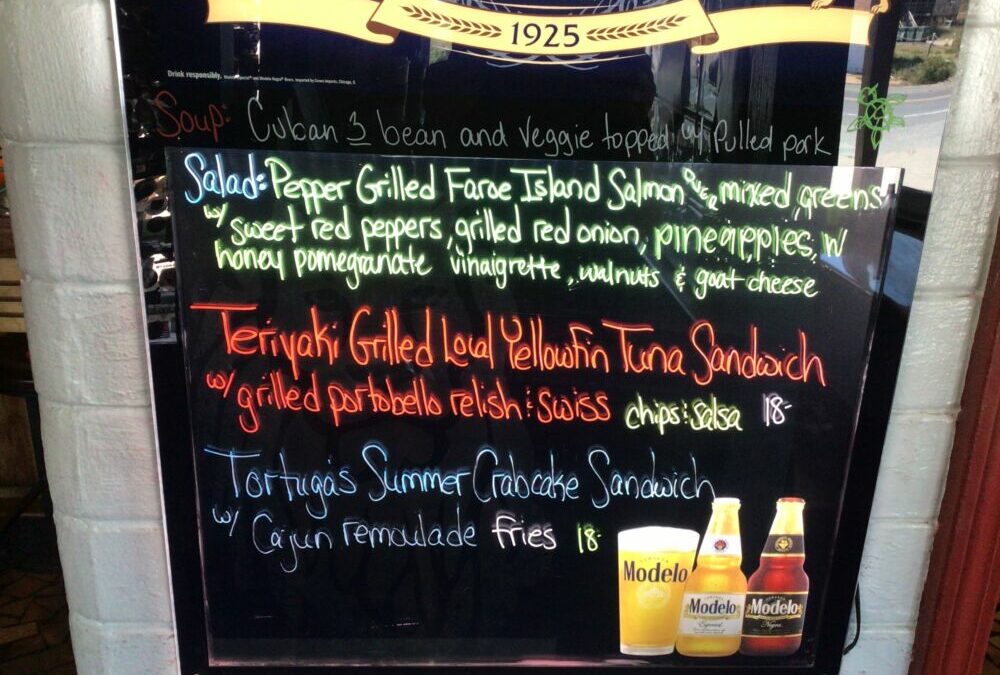 1925
Drink responsibly.
Soup: Cuban 3 bean and veggie topped w/ Pulled pork
Salad: Pepper Grilled Faroe Island Salmon over mixed greens
w/ sweet red peppers, grilled red onion, pineapples, w/
honey pomegranate vinaigrette, walnuts & goat cheese
Teriyaki Grilled Local Yellowfin Tuna Sandwich
w/ grilled portobello relish & Swiss chips & salsa 18-
Tortuga's Summer Crabcake Sandwich
w/ Cajun remoulade fries 18-
Modelo
Modelo
Especial
Modelo
Negra